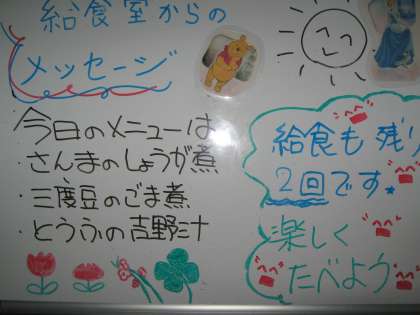 給食室からの
メッセージ
今日のメニューは
・さんまのしょうが煮
・三度豆のごま煮
・とうふの吉野汁
給食も残り
2回です。
楽しく
たべよう